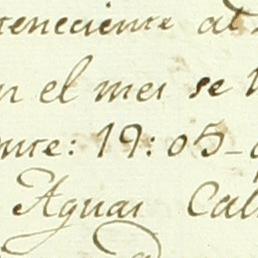 teneciente al
n el mes se
nte: 19:05-
Aguas Cal